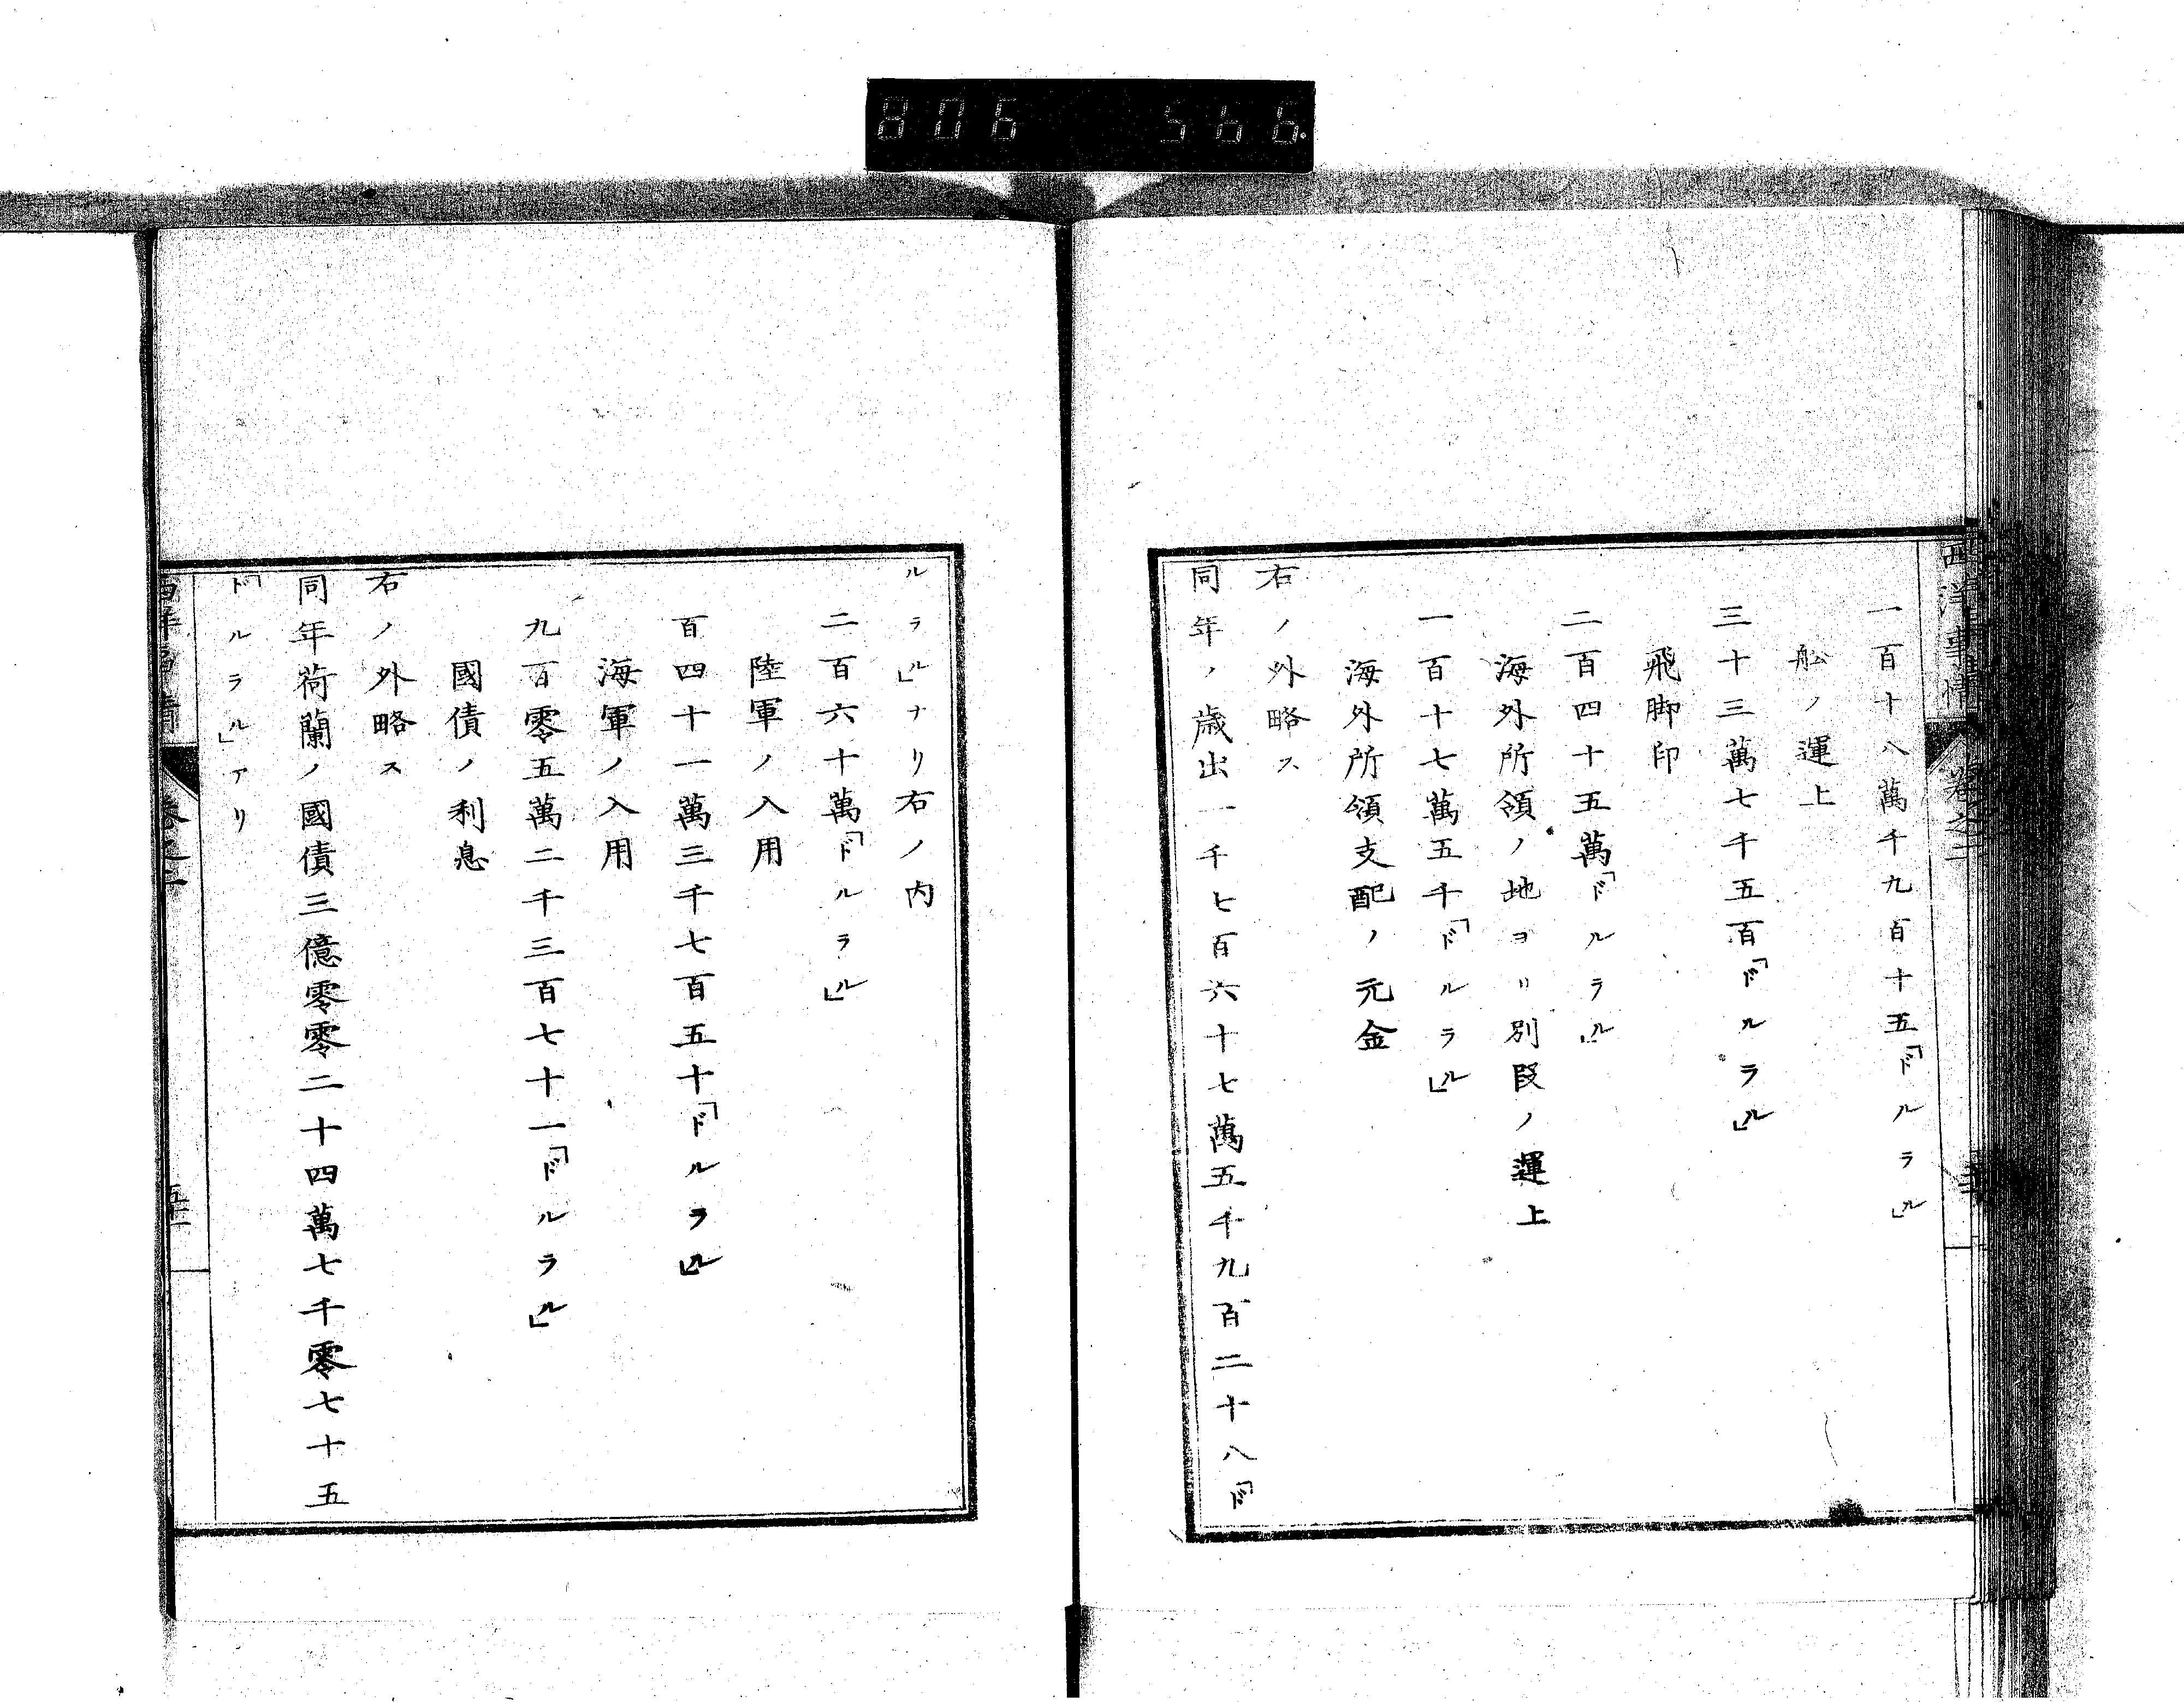 806 566.
西洋事情 卷之二
一百十八萬千九百十五「ドルラル」
舩ノ運上
三十三萬七千五百「ドルラル」
飛脚印
二百四十五萬「ドルラル」
海外所領ノ地ヨリ別段ノ運上
一百十七萬五千「ドルラル」
海外所領支配ノ元金
右ノ外略ス
同年ノ歳出一千七百六十七萬五千九百二十八「ド
ルラル」ナリ右ノ内
二百六十萬「ドルラル」
陸軍ノ入用
百四十一萬三千七百五十「ドルラル」
海軍ノ入用
九百零五萬二千三百七十一「ドルラル」
國債ノ利息
右ノ外略ス
同年荷蘭ノ國債三億零零二十四萬七千零七十五
「ドルラル」アリ